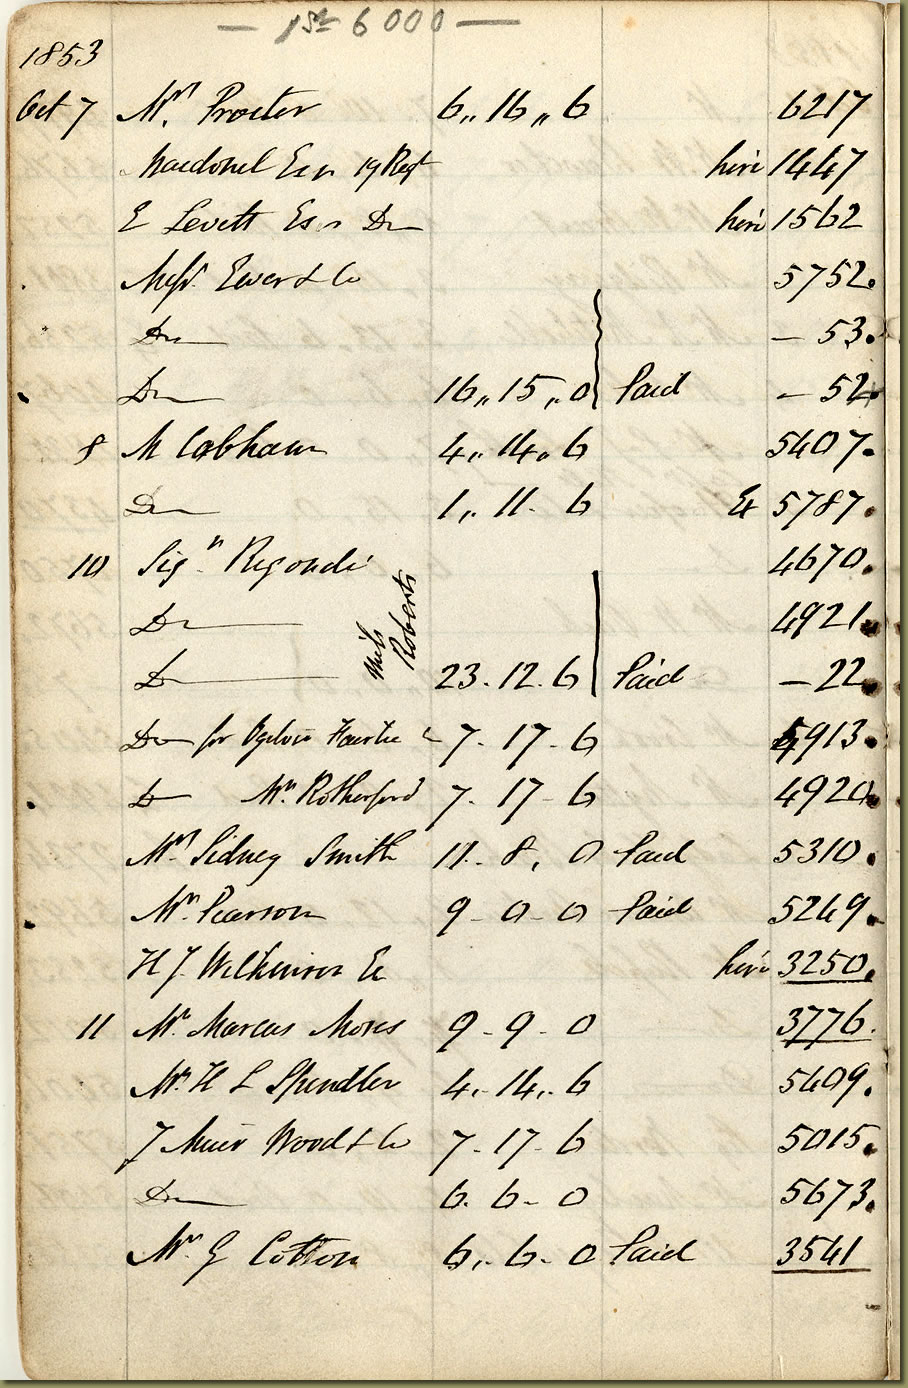 — 1st 6000 —
1853
Oct 7 Mrs. Procter 6,, 16,, 6 6217
Macdonel Esqr 19 Regt hire 1447
E Levett Esqr Do hire 1562
Messrs. Ewer & Co 5752.
Do — 53.
Do 16,, 15,, 0 Paid — 52
8 M Cobham 4,, 14,, 6 5407.
Do 1,, 11. 6 Ex 5787.
10 Sigr. Regondi 4670.
Do 4921.
Miss Roberts
Do 23. 12. 6 Paid — 22
Do for Ogilvie 7. 17. 6 5913.
Do Mrs. Rotherford 7. 17. 6 4920.
Mrs. Sidney Smith 11. 8, 0 Paid 5310.
Mrs. Pearson 9. 0. 0 Paid 5249.
H J. Wilkinson Es hire 3250.
11 Mr. Marcus Moses 9. 9. 0 3776.
Mr. H L Spindler 4,. 14,. 6 5409.
J Muir Wood & Co 7. 17. 6 5015.
Do 6. 6. 0 5673.
Mr. G Cotton 6,. 6. 0 Paid 3541